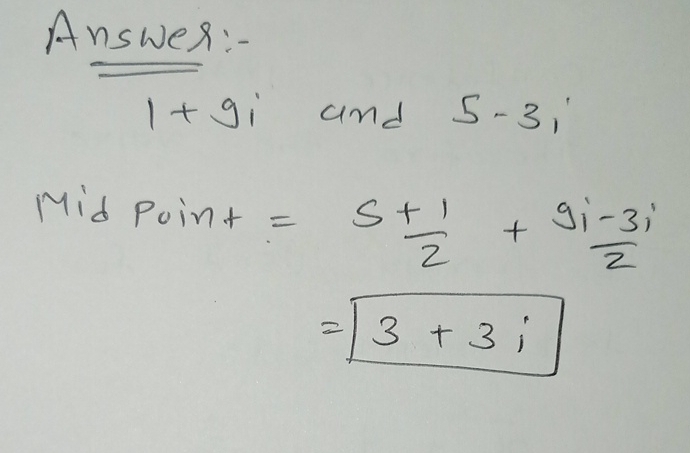 Answer:-
1+9i and 5-3i
Mid Point = 5+1/2 + 9i-3i/2
= 3 + 3i